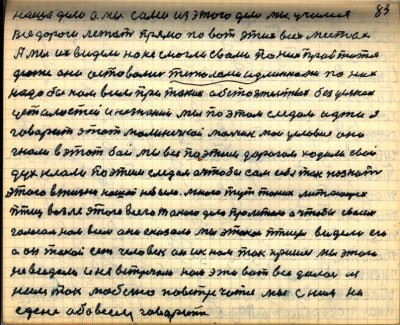 83
наша дело а мы сами из этого дело мы учимся
Все дороги лежат прямо по вот этих всех местах
А мы их видем но не смогли с вами по них пройтится
даже они оставались тяжолами и длиннами по них
надо бы нам всем при таких обстоятельствах без усяких
усталостей и незнаний мы по этом следам идти я
говорит этот маленичкой мальчик мое условие оно
гнали в этот бой мы все по этим дорогам ходили свой
дух клали по этим следам а чтобы сам себя так познать
этого в жизни нашей не было. много тут таких литающех
птиц возле этого всего такого дело пролетело а чтобы своим
голосам нам всем они сказали мы этакою птицу видели его
а он такой есть человек он их нам так пришел мы этого
не ведали и не встречали нам это вот все далося
ним так любезно повстречатся мы с ним на
едене обо всем говорить